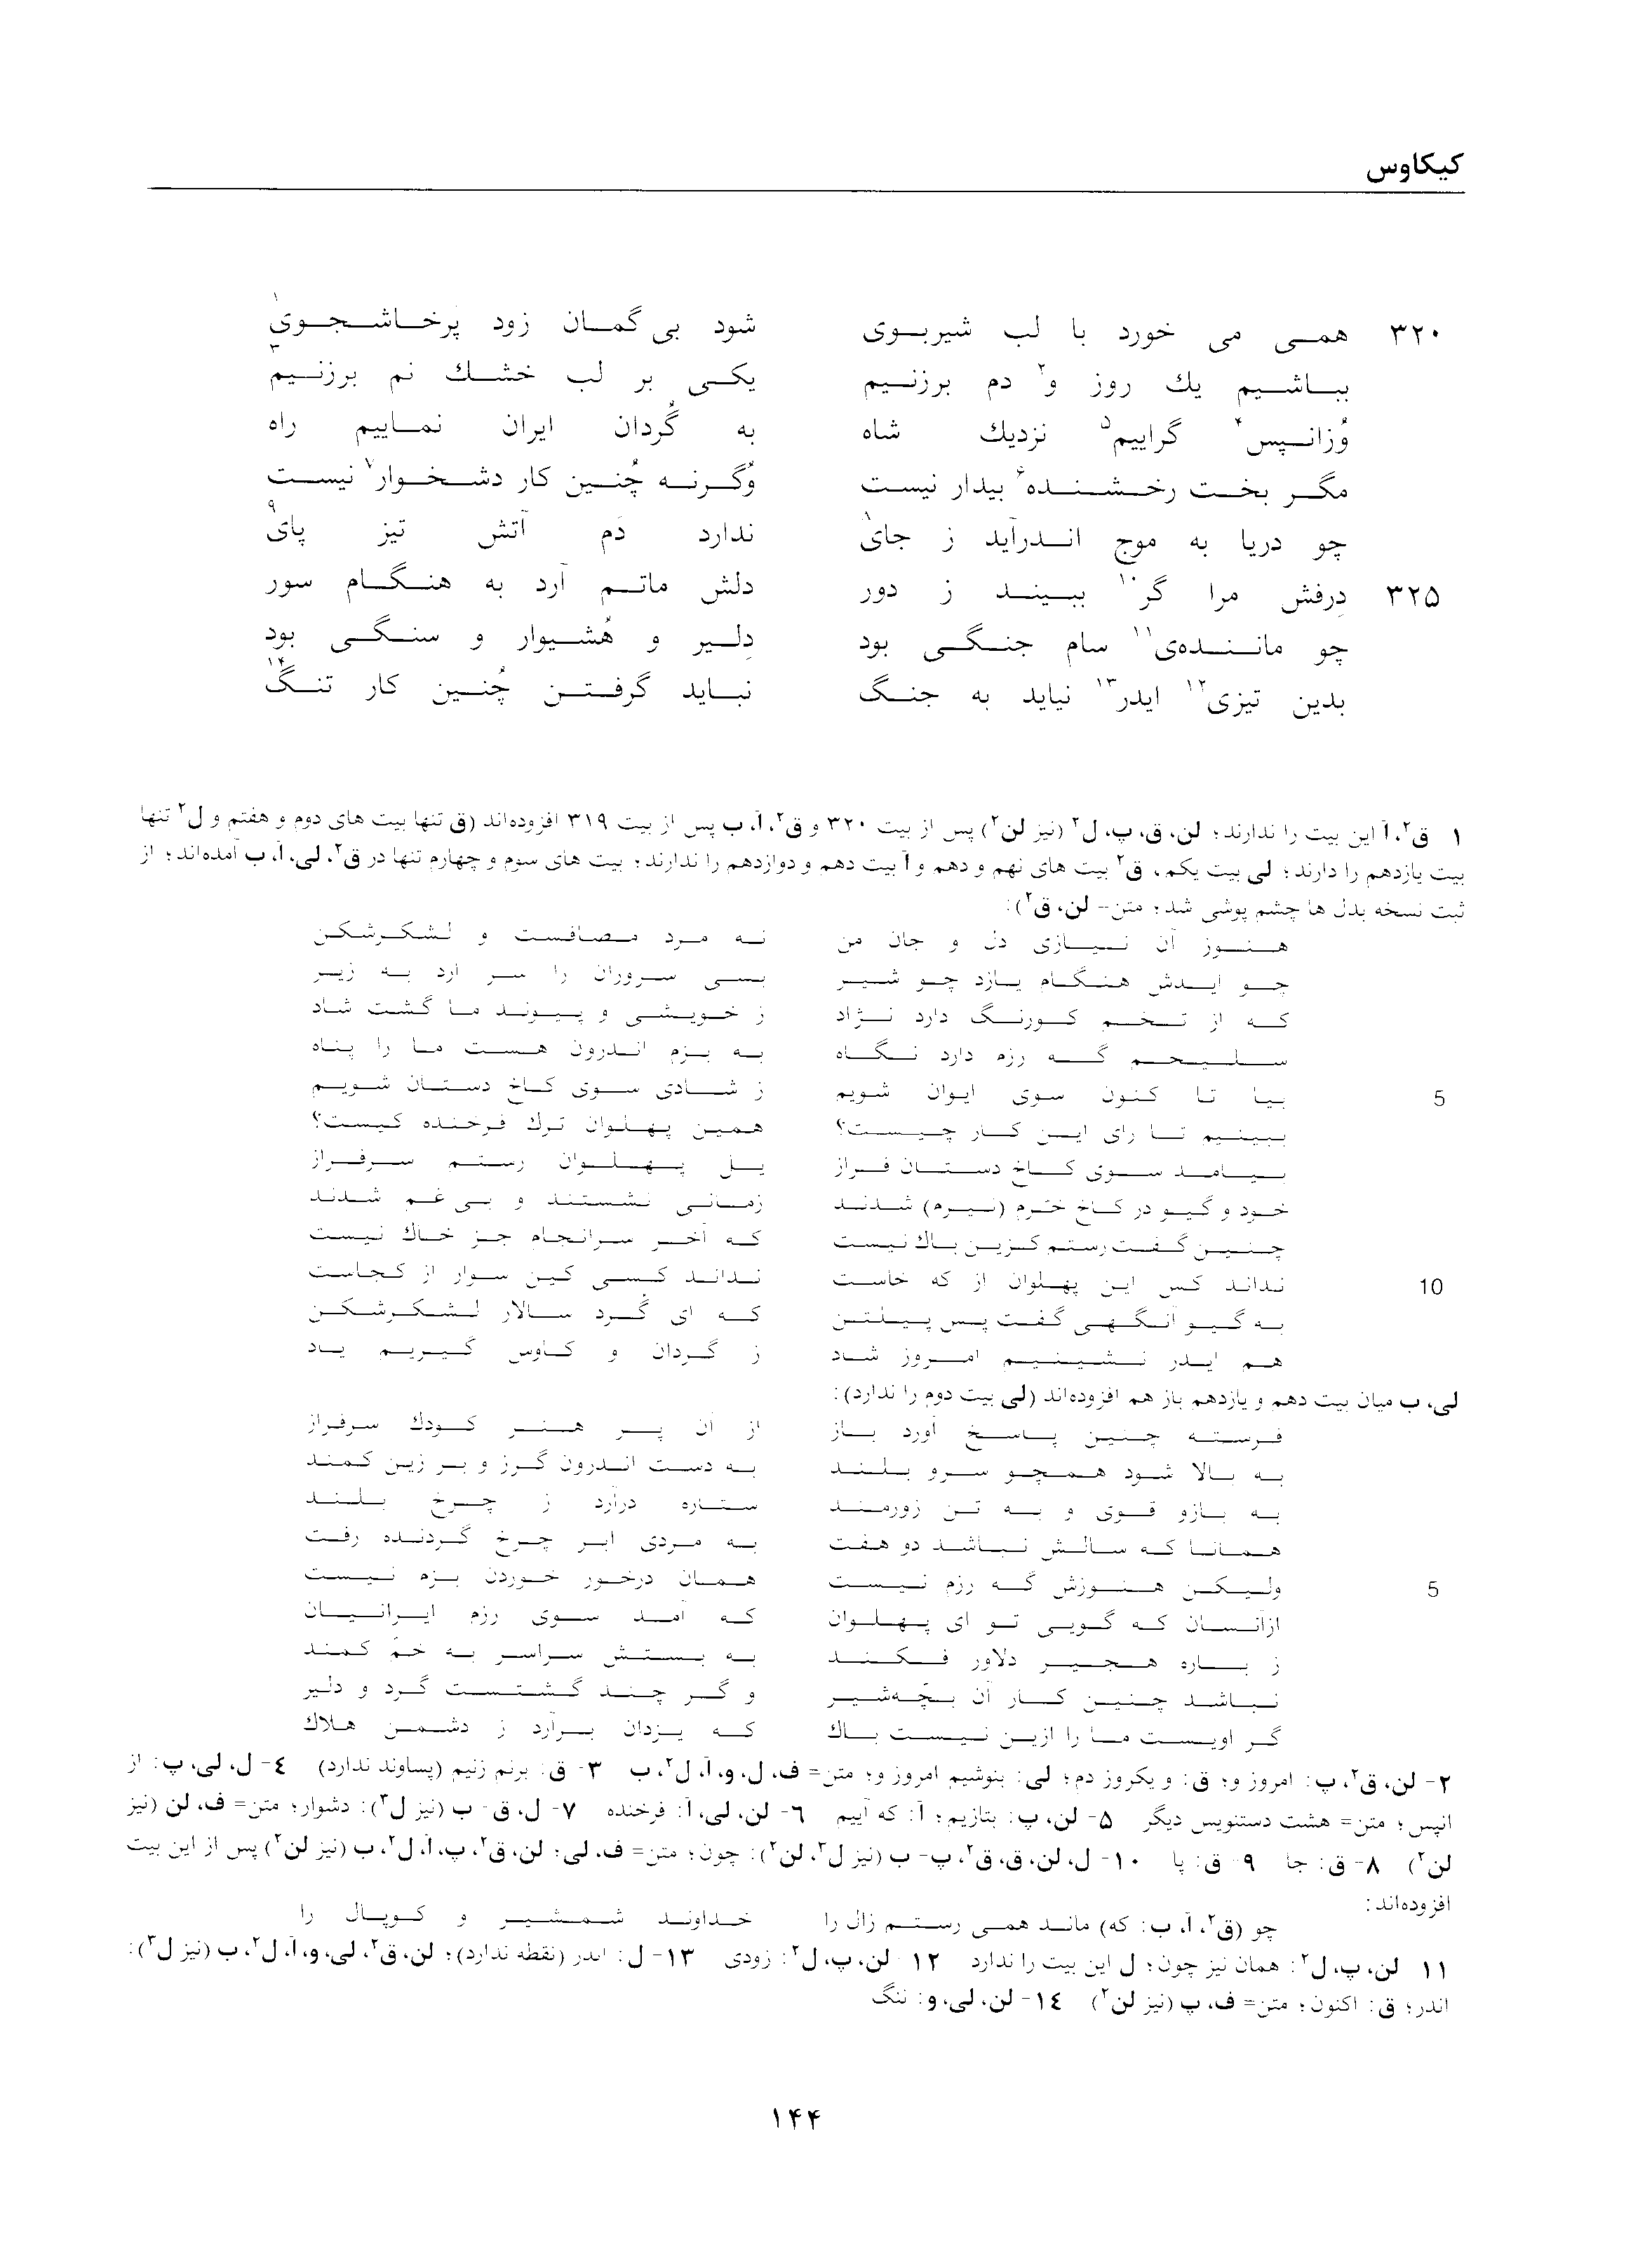 کیکاوس
۳۲۰ همی می خورد با لب شیربوی شود بی گمان زود پرخاشجوی۱
بباشیم یك روز و۲ دم برزنیم یکی بر لب خشك نم برزنیم۳
وُزانپس۴ گراییم۵ نزدیك شاه به گُردان ایران نماییم راه
مگر بخت رخشنده۶ بیدار نیست وُگرنه چُنین کار دشخوار۷ نیست
چو دریا به موج اندرآید ز جای۸ ندارد دَم آتش تیز پای۹
۳۲۵ دِرفش مرا گر۱۰ ببیند ز دور دلش ماتم آرد به هنگام سور
چو ماننده‌ی۱۱ سام جنگی بود دِلیر و هُشیوار و سنگی بود
بدین تیزی۱۲ ایدر۱۳ نیاید به جنگ نباید گرفتن چُنین کار تنگ۱۴
۱ ق۲، آ این بیت را ندارند؛ لن، ق، پ، ل۲ (نیز لن۲) پس از بیت ۳۲۰ و ق۲، آ، ب پس از بیت ۳۱۹ افزوده‌اند (ق تنها بیت های دوم و هفتم و ل۲ تنها
بیت یازدهم را دارند؛ لی بیت یکم، ق۲ بیت های نهم و دهم و آ بیت دهم و دوازدهم را ندارند؛ بیت های سوم و چهارم تنها در ق۲، لی، آ، ب آمده‌اند؛ از
ثبت نسخه بدل ها چشم پوشی شد؛ متن- لن، ق۲):
هنوز آن نیازی دل و جان من نه مرد مصافست و لشکرشکن
چو ایدش هنگام یازد چو شیر بسی سروران را سر آرد به زیر
که از تخم کورنگ دارد نژاد ز خویشی و پیوند ما گشت شاد
سلیحم گه رزم دارد نگاه به بزم اندرون هست ما را پناه
5 بیا تا کنون سوی ایوان شویم ز شادی سوی کاخ دستان شویم
ببینیم تا رای این کار چیست؟ همین پهلوان ترك فرخنده کیست؟
بیامد سوی کاخ دستان فراز یل پهلوان رستم سرفراز
خود و گیو در کاخ خرّم (نیرم) شدند زمانی نشستند و بی غم شدند
چنین گفت رستم کزین باك نیست که آخر سرانجام جز خاك نیست
10 نداند کس این پهلوان از که خاست نداند کسی کین سوار از کجاست
به گیو آنگهی گفت پس پیلتن که ای گُرد سالار لشکرشکن
هم ایدر نشینیم امروز شاد ز گردان و کاوس گیریم یاد
لی، ب میان بیت دهم و یازدهم باز هم افزوده‌اند (لی بیت دوم را ندارد):
فرسته چنین پاسخ آورد باز از آن پر هنر کودك سرفراز
به بالا شود همچو سرو بلند به دست اندرون گرز و بر زین کمند
به بازو قوی و به تن زورمند ستاره درآرد ز چرخ بلند
همانا که سالش نباشد دو هفت به مردی ابر چرخ گردنده رفت
5 ولیکن هنوزش گه رزم نیست همان درخور خوردن بزم نیست
ازآنسان که گویی تو ای پهلوان که آمد سوی رزم ایرانیان
ز باره هجیر دلاور فکند به بستش سراسر به خمّ کمند
نباشد چنین کار آن بچّه‌شیر و گر چند گشتست گرد و دلیر
گر اویست ما را ازین نیست باك که یزدان برآرد ز دشمن هلاك
۲- لن، ق۲، پ: امروز و؛ ق: و یکروز دم؛ لی: بنوشیم امروز و؛ متن= ف، ل، و، آ، ل۲، ب ۳- ق: برنم زنیم (پساوند ندارد) ٤- ل، لی، پ: از
انپس؛ متن= هشت دستنویس دیگر ۵- لن، پ: بتازیم؛ آ: که آییم ٦- لن، لی، آ: فرخنده ۷- ل، ق- ب (نیز ل۳): دشوار؛ متن= ف، لن (نیز
لن۲) ۸- ق: جا ۹- ق: پا ۱۰- ل، لن، ق، ق۲، پ- ب (نیز ل۳، لن۲): چون؛ متن= ف، لی؛ لن، ق۲، پ، آ، ل۲، ب (نیز لن۲) پس از این بیت
افزوده‌اند:
چو (ق۲، آ، ب: که) ماند همی رستم زال را خداوند شمشیر و کوپال را
۱۱ لن، پ، ل۲: همان نیز چون؛ ل این بیت را ندارد ۱۲ لن، پ، ل۲: زودی ۱۳- ل: اىدر (نقطه ندارد)؛ لن، ق۲، لی، و، آ، ل۲، ب (نیز ل۳):
اندر؛ ق: اکنون؛ متن= ف، پ (نیز لن۲) ۱٤- لن، لی، و: ننگ
۱۴۴